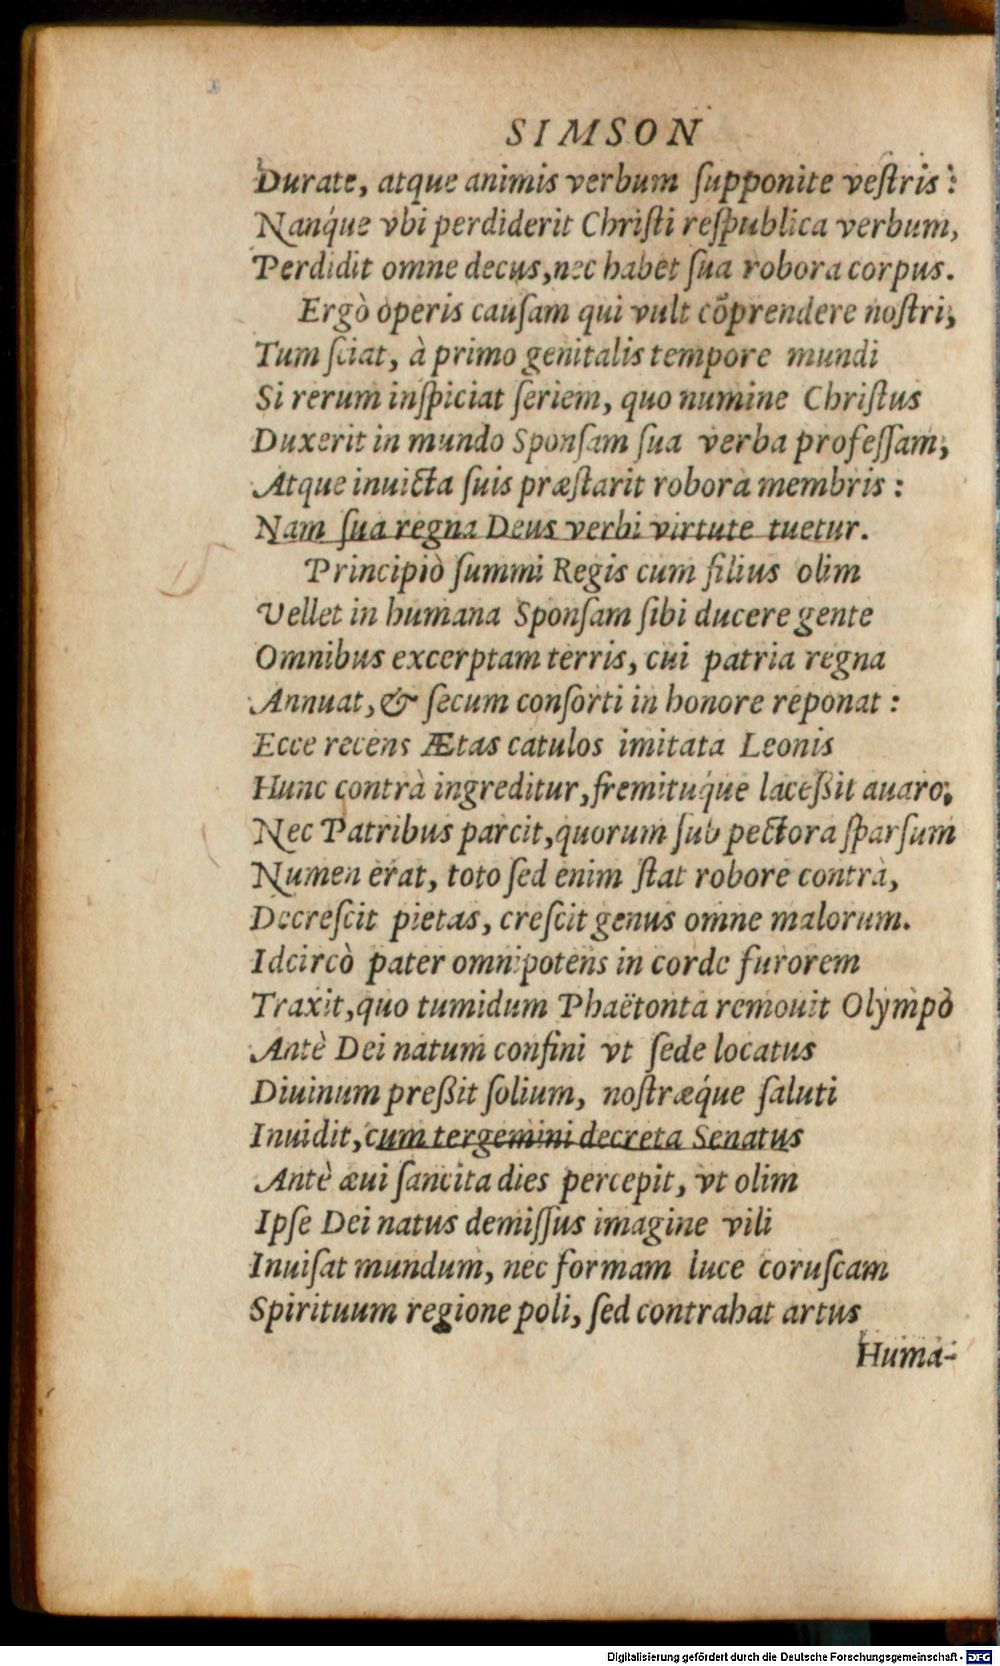 SIMSON
Durate, atque animis verbum ſupponite veſtris:
Nanq́ue vbi perdiderit Chriſti reſpublica verbum,
Perdidit omne decus, nec habet ſua robora corpus.
Ergò operis cauſam qui vult cõprendere noſtri,
Tum ſciat, à primo genitalis tempore mundi
Si rerum inſpiciat ſeriem, quo numine Chriſtus
Duxerit in mundo Sponſam ſua verba profeſſam,
Atque inuicta ſuis præſtarit robora membris:
Nam ſua regna Deus verbi virtute tuetur.
Principiò ſummi Regis cum filius olim
Vellet in humana Sponſam ſibi ducere gente
Omnibus excerptam terris, cui patria regna
Annuat, & ſecum conſorti in honore reponat:
Ecce recens Ætas catulos imitata Leonis
Hunc contrà ingreditur, fremituq́ue laceßit auaro,
Nec Patribus parcit, quorum ſub pectora ſparſum
Numen erat, toto ſed enim ſtat robore contrà,
Decreſcit pietas, creſcit genus omne malorum.
Idcircò pater omnipotens in corde furorem
Traxit, quo tumidum Phaëtonta remouit Olympò
Antè Dei natum confini vt ſede locatus
Diuinum preßit ſolium, noſtræq́ue ſaluti
Inuidit, cum tergemini decreta Senatus
Antè æui ſancita dies percepit, vt olim
Ipſe Dei natus demiſſus imagine vili
Inuiſat mundum, nec formam luce coruſcam
Spirituum regione poli, ſed contrahat artus
Huma-
Digitalisierung gefördert durch die Deutsche Forschungsgemeinschaft - DFG